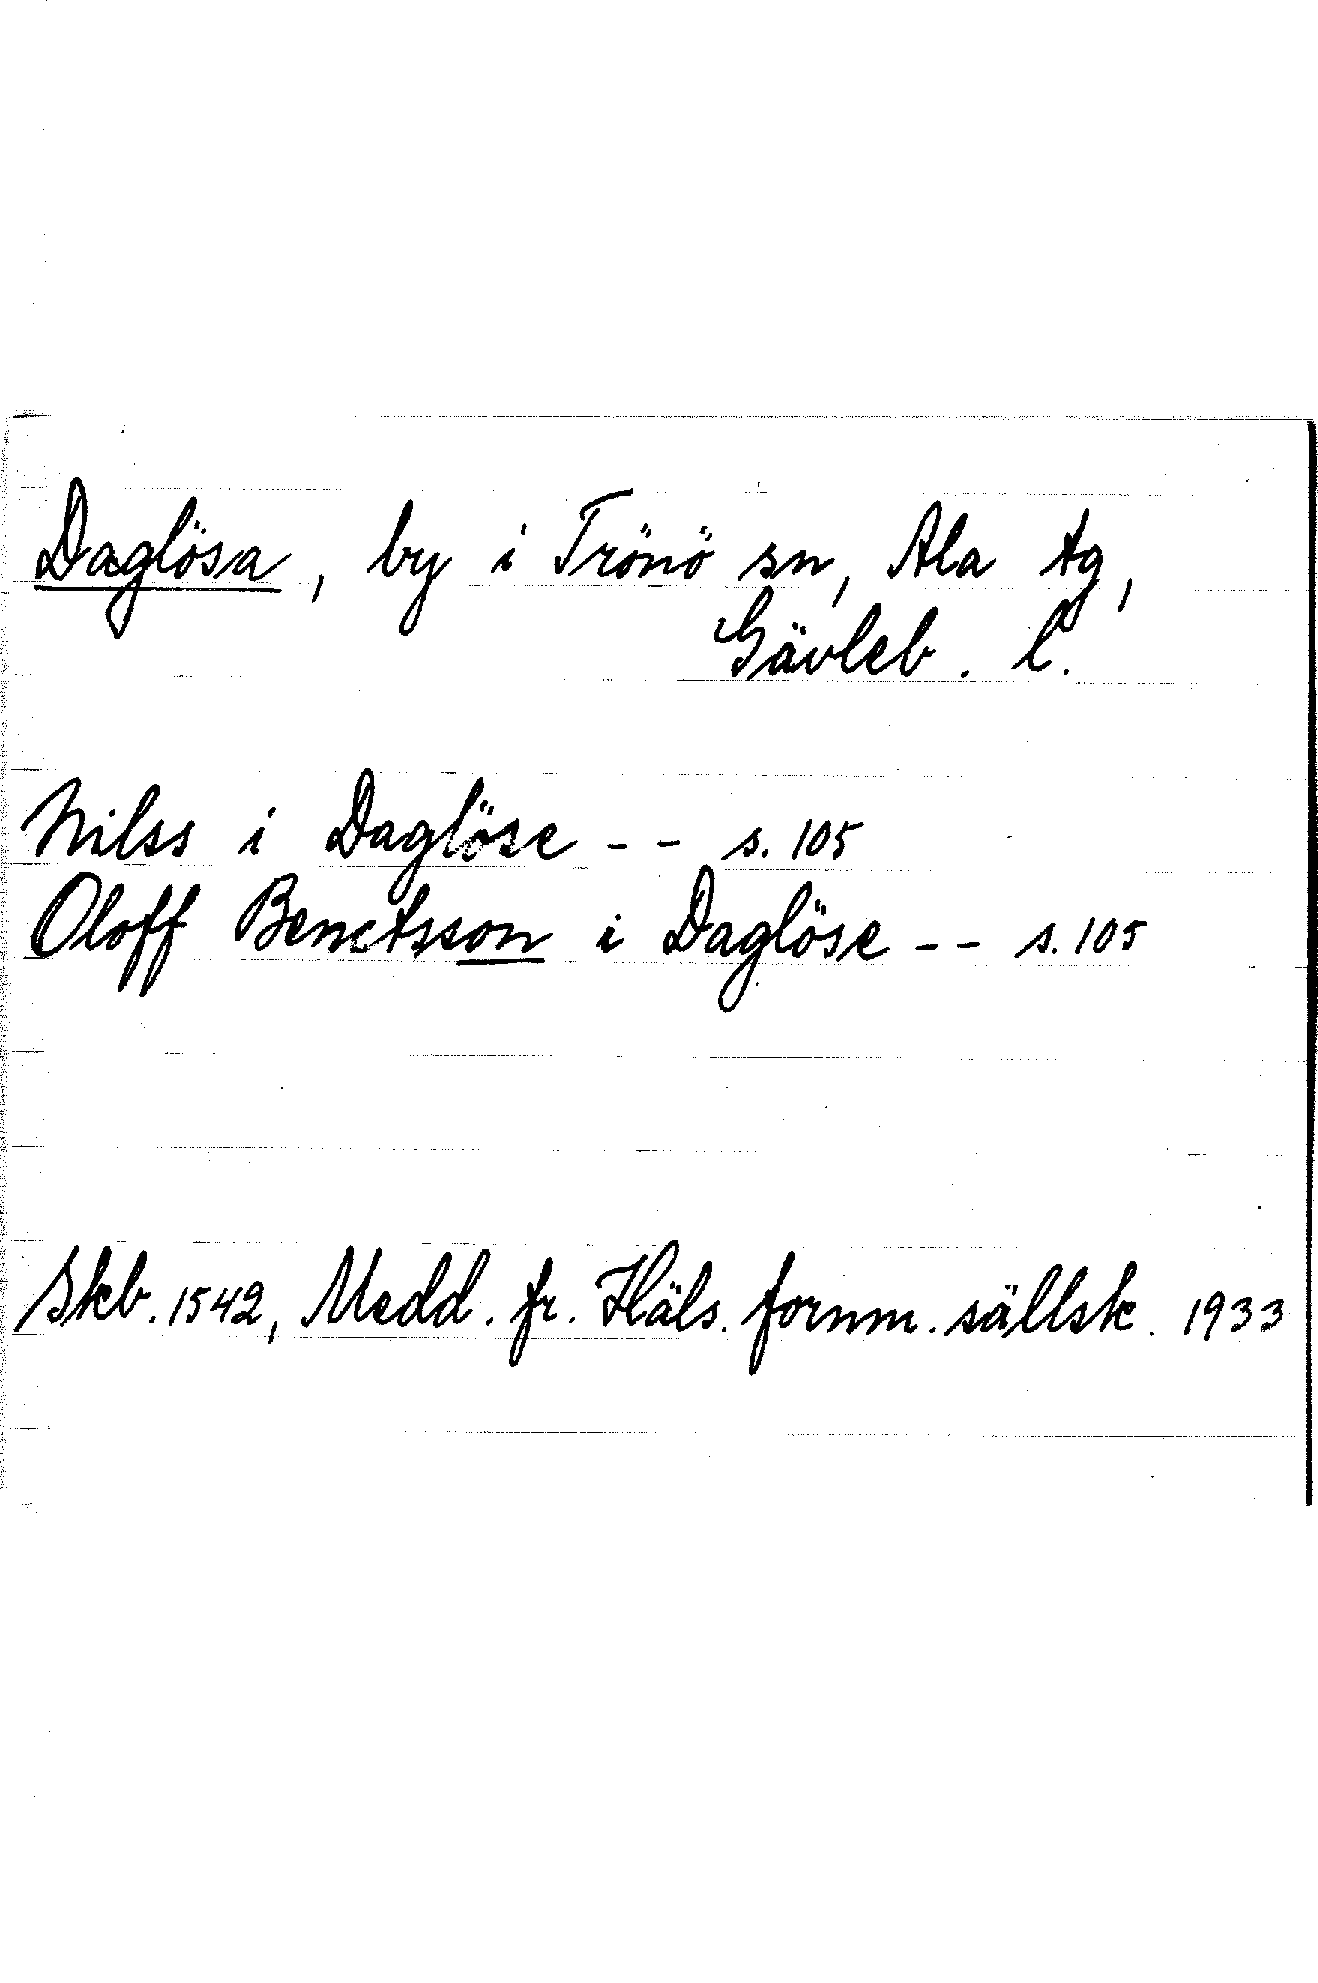 Daglösa, by i Trönö sn, Ala tg,
Gävleb. l.
Nilss i Daglöse -- s. 105
Oloff Benctsson i Daglöse -- s. 105
Skb. 1542, Medd. fr. Häls. fornm. sällsk. 1933